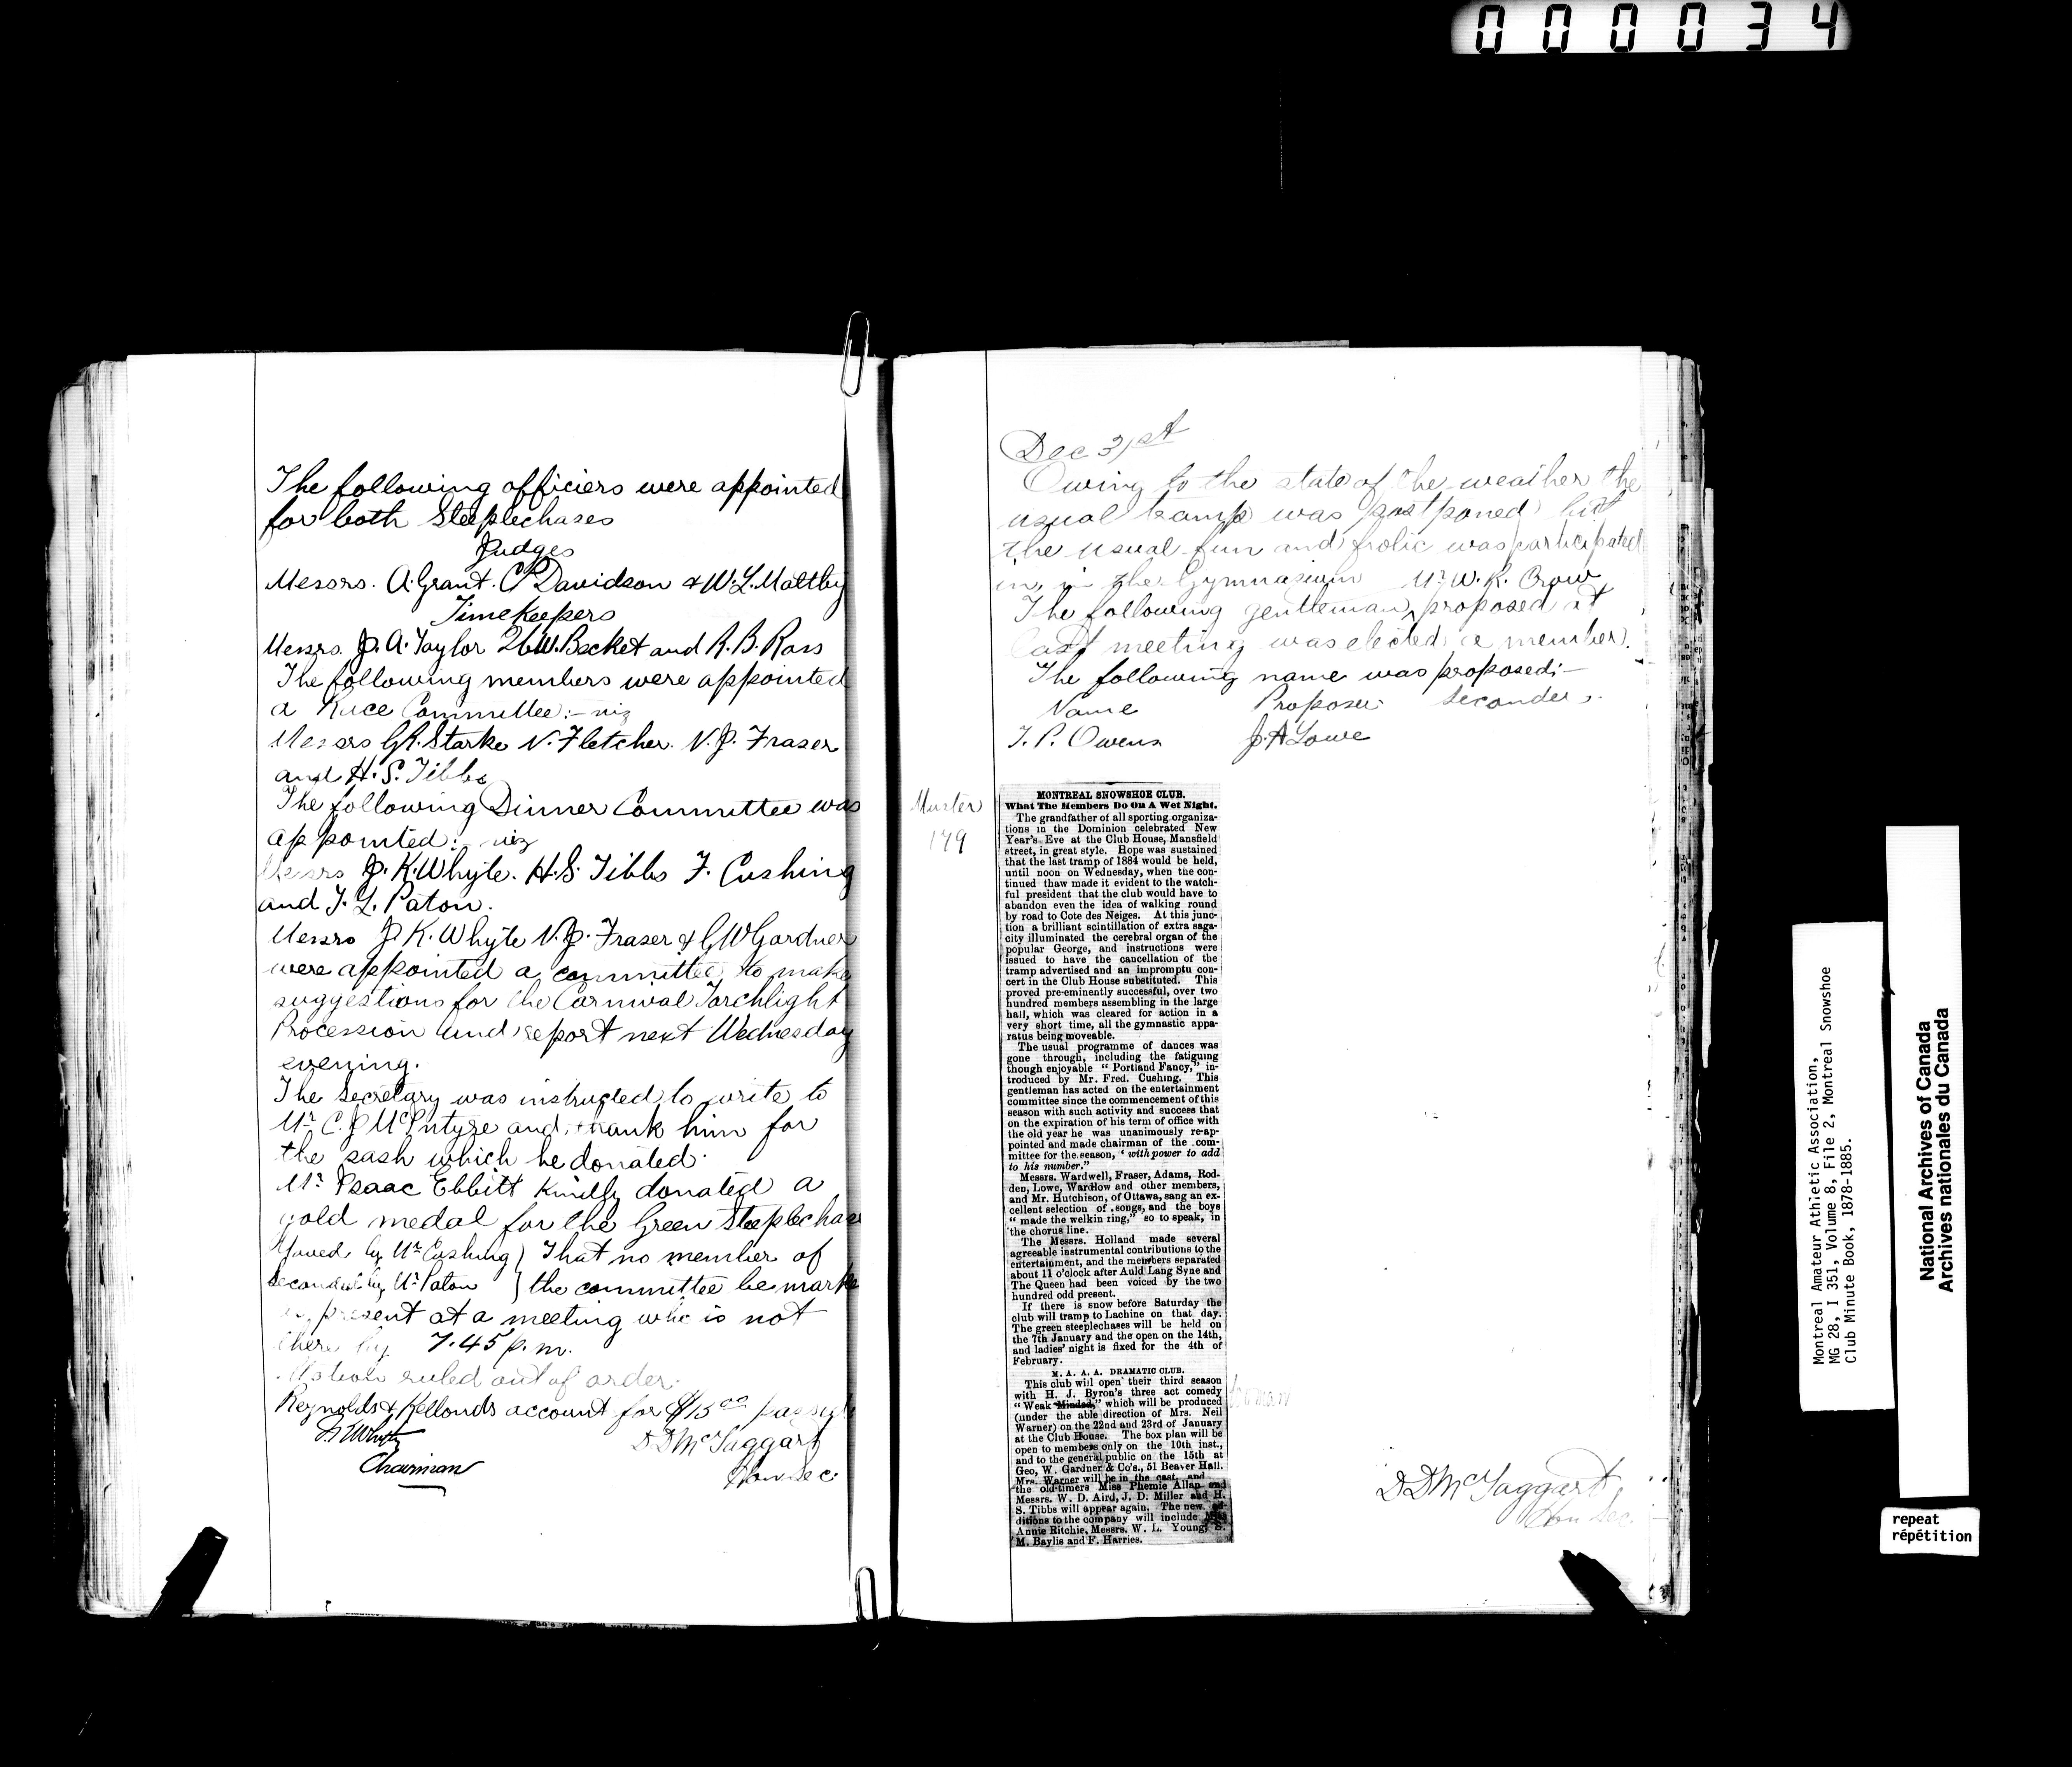 000034
The following officiers were appointed
for both Steeplechases
Judges
Messrs. A. Grant. C P Davidson & W. L. Maltby
Timekeepers
Messrs. J. A. Taylor W. Becket and R. B. Ross
The following members were appointed
a Race Committee:- viz
Messrs G R. Starke N. Fletcher. N. J. Fraser
and H. S. Tibbs
The following Dinner Committee was
appointed:- viz
Messrs J. K. Whyte. H. S. Tibbs F. Cushing
and T. L. Paton.
Messrs J. K. Whyte N. J. Fraser & G W Gardner
were appointed a committee to make
suggestions for the Carnival Torchlight
Procession and report next Wednesday
evening.
The Secretary was instructed to write to
Mr. C. J McIntyre and thank him for
the sash which he donated.
Mr. Isaac Ebbitt kindly donated a
gold medal for the Green Steeplechase
Moved by Mr. Cushing } That no member of
Seconded by Mr. Paton } the committee be marked
as present at a meeting who is not
there by 7.45 p. m.
Motion ruled out of order.
Reynolds & Kellonds account for $15 00
Chairman
D D McTaggart
Hon Sec.
Dec 31st
Owing to the state of the weather the
usual tramp was postponed but
the usual fun and frolic was participated
in, in the Gymnasium Mr. W. K. Crow
The following gentleman ^ proposed at
last meeting was elected a member.
The following name was proposed:-
Name Proposer Seconder
T. P. Owens J. A Lowe
Muster
179
MONTREAL SNOWSHOE CLUB.
What The Members Do On A Wet Night.
The grandfather of all sporting organiza-
tions in the Dominion celebrated New
Year's Eve at the Club House, Mansfield
street, in great style. Hope was sustained
that the last tramp of 1884 would be held,
until noon on Wednesday, when the con-
tinued thaw made it evident to the watch-
ful president that the club would have to
abandon even the idea of walking round
by road to Cote des Neiges. At this junc-
tion a brilliant scintillation of extra saga-
city illuminated the cerebral organ of the
popular George, and instructions were
issued to have the cancellation of the
tramp advertised and an impromptu con-
cert in the Club House substituted. This
proved pre-eminently successful, over two
hundred members assembling in the large
hall, which was cleared for action in a
very short time, all the gymnastic appa-
ratus being moveable.
The usual programme of dances was
gone through, including the fatiguing
though enjoyable "Portland Fancy," in-
troduced by Mr. Fred. Cushing. This
gentleman has acted on the entertainment
committee since the commencement of this
season with such activity and success that
on the expiration of his term of office with
the old year he was unanimously re-ap-
pointed and made chairman of the com-
mittee for the season, "with power to add
to his number."
Messrs. Wardwell, Fraser, Adams, Rod-
den, Lowe, Wardlow and other members,
and Mr. Hutchison, of Ottawa, sang an ex-
cellent selection of songs, and the boys
"made the welkin ring," so to speak, in
the chorus line.
The Messrs. Holland made several
agreeable instrumental contributions to the
entertainment, and the members separated
about 11 o'clock after Auld Lang Syne and
The Queen had been voiced by the two
hundred odd present.
If there is snow before Saturday the
club will tramp to Lachine on that day.
The green steeplechases will be held on
the 7th January and the open on the 14th,
and ladies' night is fixed for the 4th of
February.
M. A. A. A. DRAMATIC CLUB.
This club will open their third season
with H. J. Byron's three act comedy
"Weak Minded," which will be produced
(under the able direction of Mrs. Neil
Warner) on the 22nd and 23rd of January
at the Club House. The box plan will be
open to members only on the 10th inst.,
and to the general public on the 15th at
Geo, W. Gardner & Co's., 51 Beaver Hall.
Mrs. Warner will be in the cast, and
the old-timers Miss Phemie Allan and
Messrs. W. D. Aird, J. D. Miller and H.
S. Tibbs will appear again. The new ad-
ditions to the company will include Miss
Annie Ritchie, Messrs. W. L. Young, S.
M. Baylis and F. Harries.
D D McTaggart
Hon Sec.
Montreal Amateur Athletic Association,
MG 28, I 351, Volume 8, File 2, Montreal Snowshoe
Club Minute Book, 1878-1885.
National Archives of Canada
Archives nationales du Canada
repeat
répétition